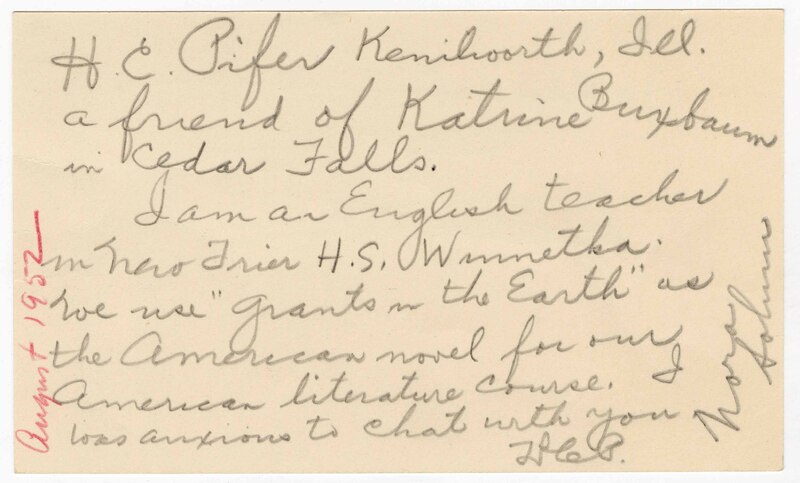 H. E. Pifer Kenilworth, Ill.
a friend of Katrine Buxbaum
in Cedar Falls.
I am an English teacher
in New Trier H.S. Winnetka.
We use "Giants in the Earth" as
the American novel for our
American literature course. I
was anxious to chat with you
H.E.P.
Nora
Solum
August 1952